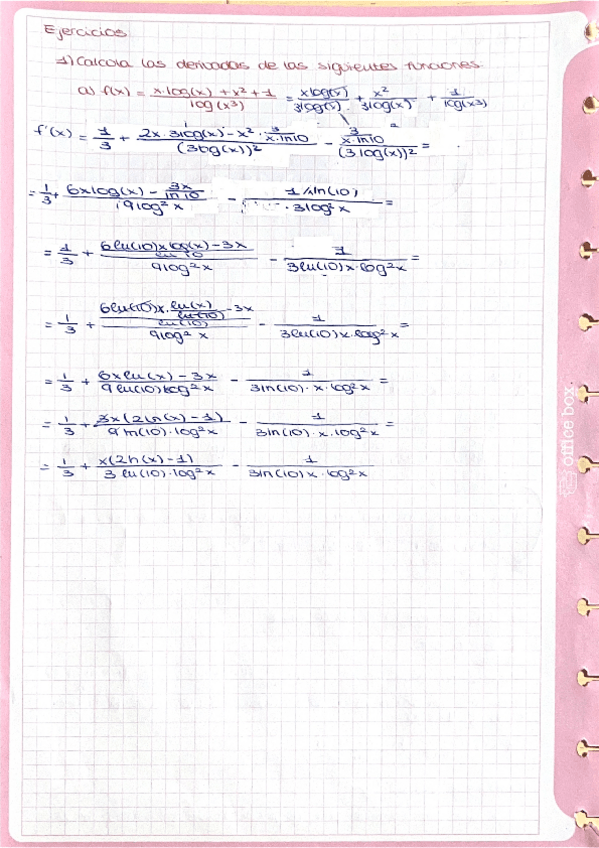 Ejercicios
1) Calcula las derivadas de las siguientes funciones:
a) f(x) = (x·log(x) + x² + 1)/(log(x³)) = (x log(x))/(3log(x)) + x²/(3log(x)) + 1/(log(x³))
f'(x) = 1/3 + (2x·3log(x) - x²·3/(x·ln10))/((3log(x))²) - (3/(x·ln10))/((3log(x))²) =
= 1/3 + (6xlog(x) - 3x/ln10)/(9log²x) - (1/ln(10))/(·3log²x) =
= 1/3 + ((6ln(10)xlog(x) - 3x)/ln10)/(9log²x) - 1/(3ln(10)x·log²x) =
= 1/3 + ((6ln(10)x·ln(x)/ln(10) - 3x)/ln(10))/(9log²x) - 1/(3ln(10)x·log²x) =
= 1/3 + (6xln(x) - 3x)/(9ln(10)log²x) - 1/(3ln(10)·x·log²x) =
= 1/3 + (3x(2ln(x) - 1))/(9ln(10)·log²x) - 1/(3ln(10)·x·log²x) =
= 1/3 + (x(2ln(x) - 1))/(3ln(10)·log²x) - 1/(3ln(10)x·log²x)
office box.